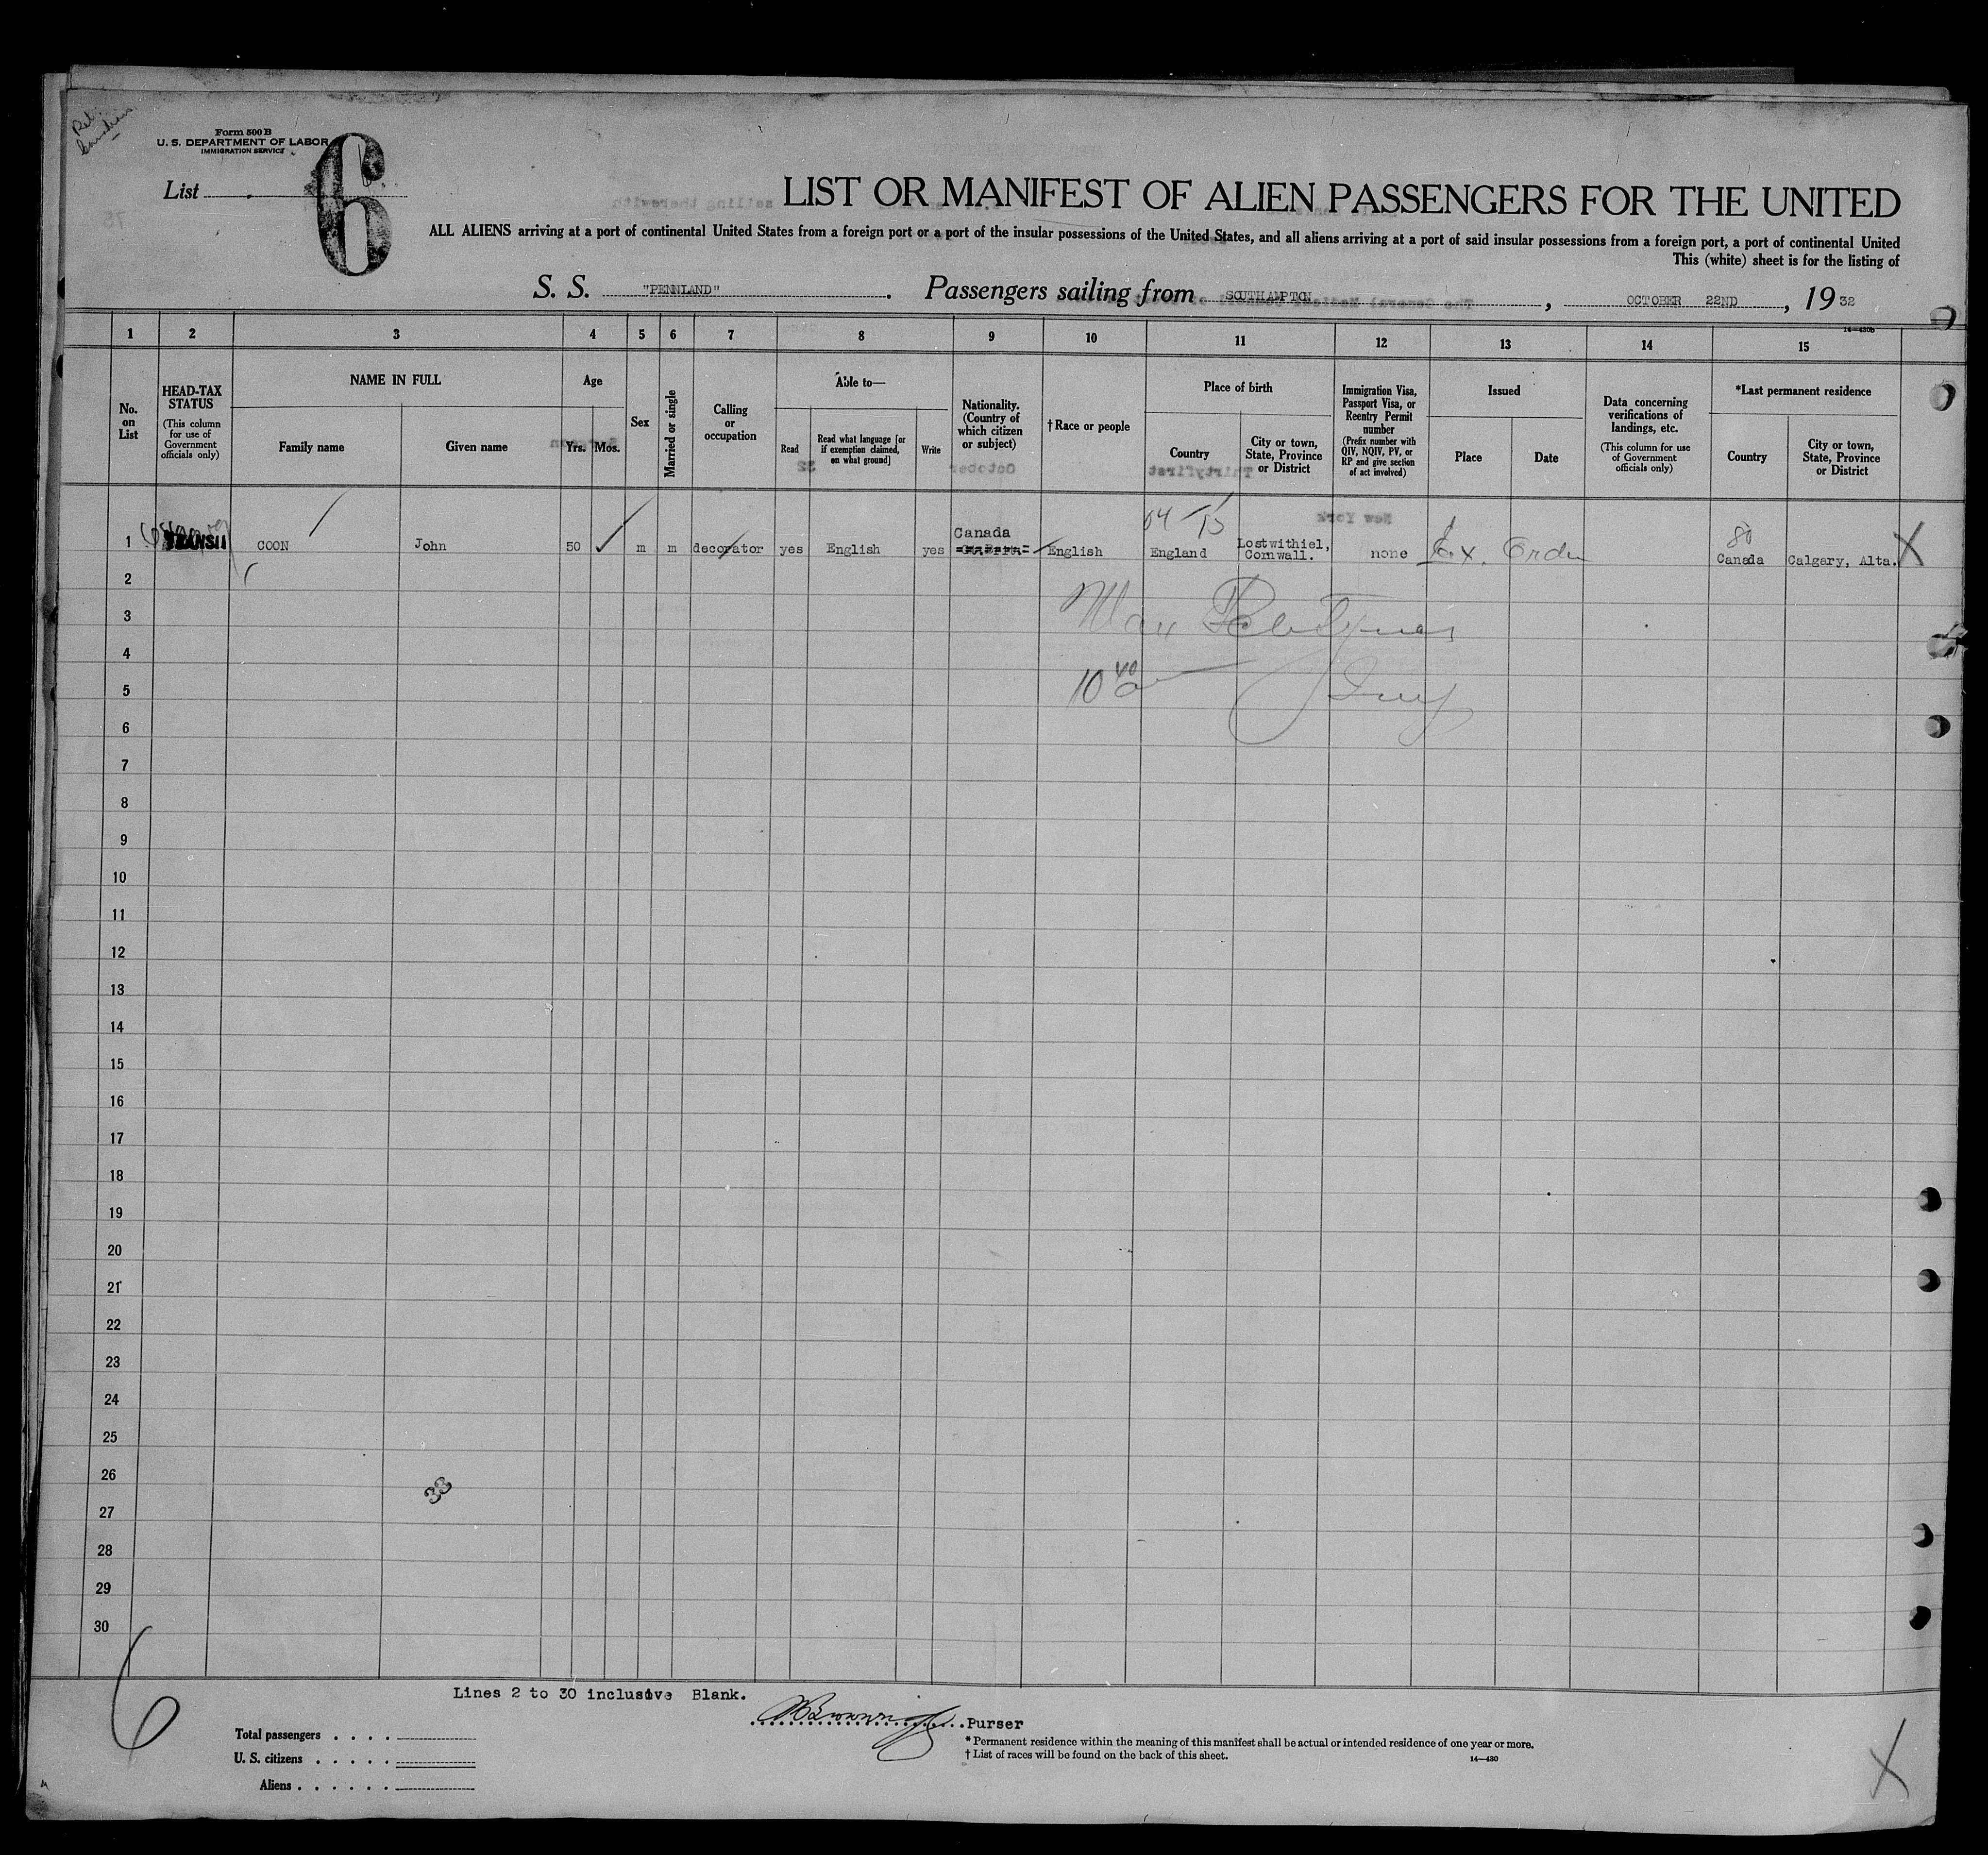 Form 500 B
U. S. DEPARTMENT OF LABOR
IMMIGRATION SERVICE
List
6
LIST OR MANIFEST OF ALIEN PASSENGERS FOR THE UNITED
ALL ALIENS arriving at a port of continental United States from a foreign port or a port of the insular possessions of the United States, and all aliens arriving at a port of said insular possessions from a foreign port, a port of continental United
This (white) sheet is for the listing of
S. S. "PENNLAND". Passengers sailing from SOUTHAMPTON, OCTOBER 22ND, 1932
14—430b
1 2 3 4 5 6 7 8 9 10 11 12 13 14 15
No. on List
HEAD-TAX STATUS
(This column for use of Government officials only)
NAME IN FULL
Family name
Given name
Age
Yrs.
Mos.
Sex
Married or single
Calling or occupation
Able to—
Read
Read what language [or if exemption claimed, on what ground]
Write
Nationality. (Country of which citizen or subject)
†Race or people
Place of birth
Country
City or town, State, Province or District
Immigration Visa, Passport Visa, or Reentry Permit number
(Prefix number with QIV, NQIV, PV, or RP and give section of act involved)
Issued
Place
Date
Data concerning verifications of landings, etc.
(This column for use of Government officials only)
*Last permanent residence
Country
City or town, State, Province or District
1 TRANSIT COON John 50 m m decorator yes English yes Canada English England Lostwithiel, Cornwall. none Ex. Order 80 Canada Calgary, Alta. X
2
3
4
5
10 40
6
7
8
9
10
11
12
13
14
15
16
17
18
19
20
21
22
23
24
25
26
38
27
28
29
30
6
Lines 2 to 30 inclusive Blank.
Purser
Total passengers
U. S. citizens
Aliens
* Permanent residence within the meaning of this manifest shall be actual or intended residence of one year or more.
† List of races will be found on the back of this sheet.
14—430
X